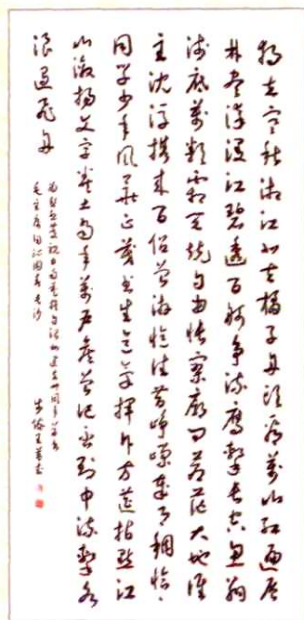 独立寒秋湘江北去橘子洲头看万山红遍层
林尽染漫江碧透百舸争流鹰击长空鱼翔
浅底万类霜天竞自由怅寥廓问苍茫大地谁
主沉浮携来百侣曾游忆往昔峥嵘岁月稠恰恰
同学少年风华正茂书生意气挥斥方遒指点江
山激扬文字粪土当年万户侯曾记否到中流击水
浪遏飞舟
毛主席词沁园春长沙